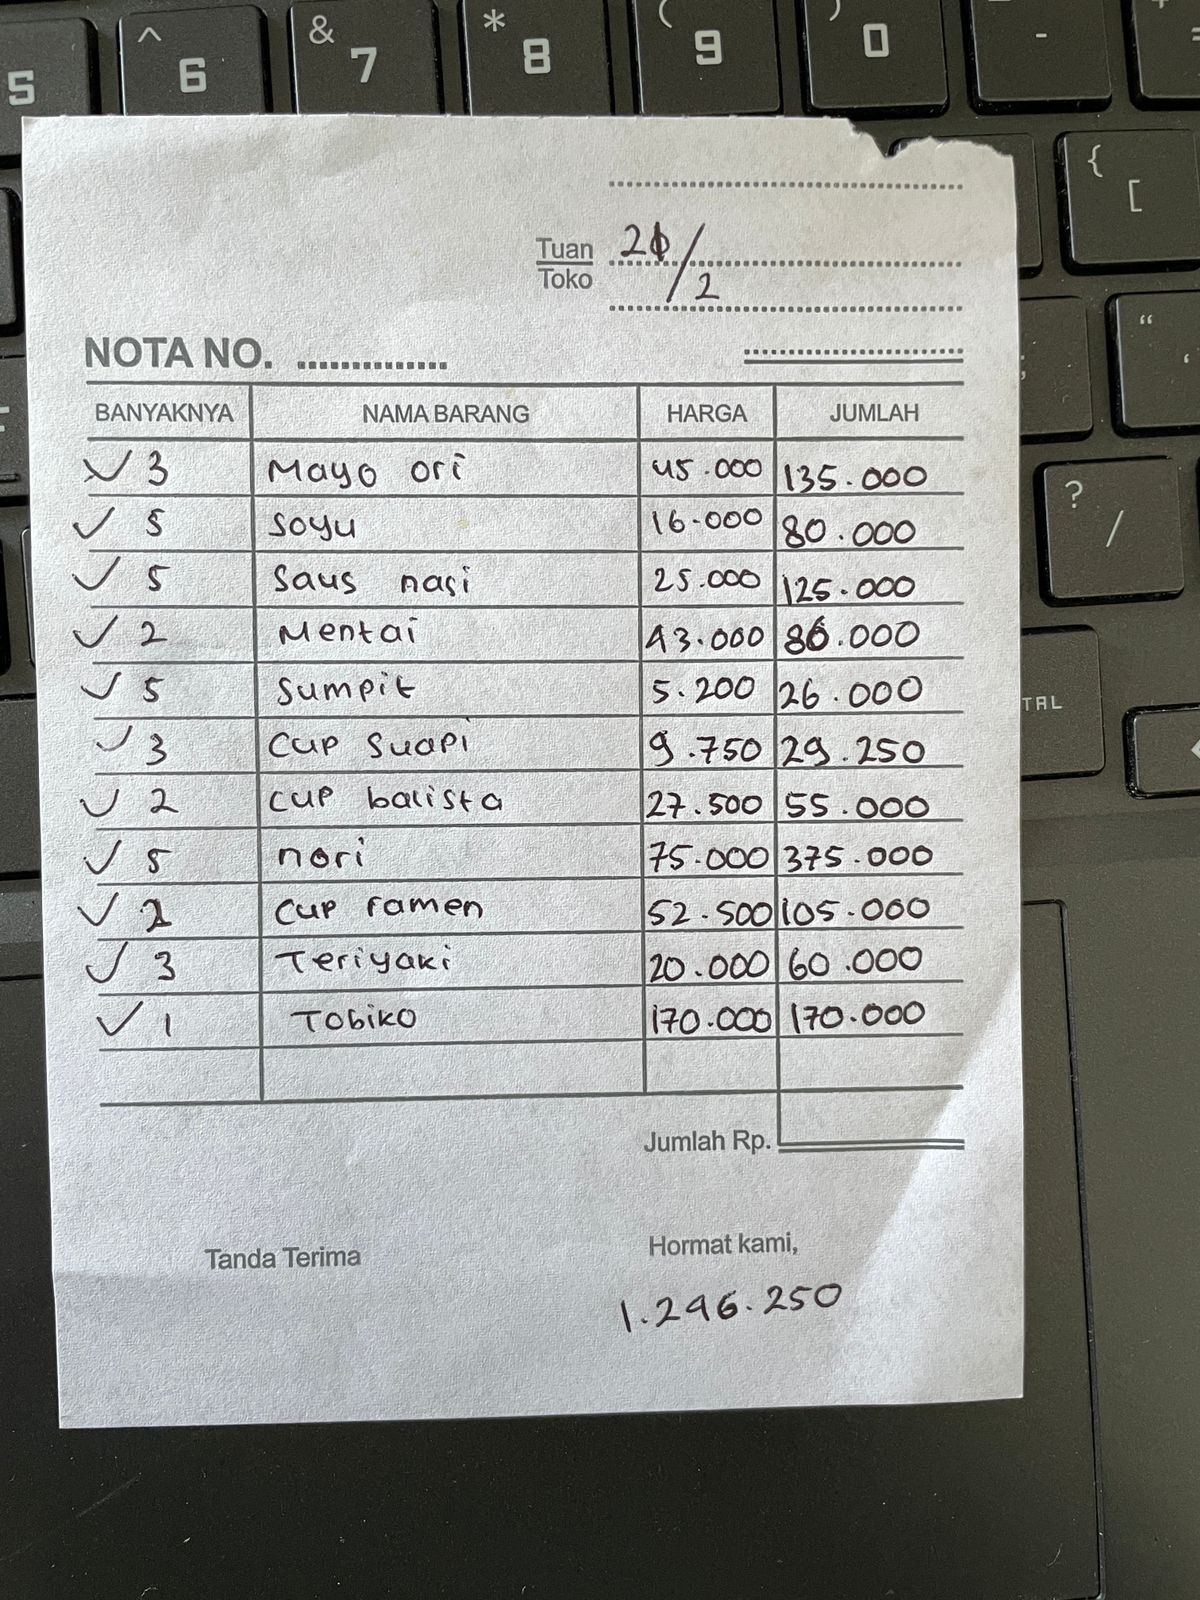 ^ & * ( ) -
5 6 7 8 9 0 =
{
[
Tuan 21/2
Toko
NOTA NO.
BANYAKNYA NAMA BARANG HARGA JUMLAH
3 Mayo ori 45.000 135.000
5 Soyu 16.000 80.000
5 Saus nasi 25.000 125.000
2 Mentai 43.000 86.000
5 Sumpit 5.200 26.000
3 Cup Suapi 9.750 29.250
2 Cup balista 27.500 55.000
5 nori 75.000 375.000
2 Cup ramen 52.500 105.000
3 Teriyaki 20.000 60.000
1 Tobiko 170.000 170.000
Jumlah Rp.
Tanda Terima Hormat kami,
1.246.250
“
;
?
/
TRL